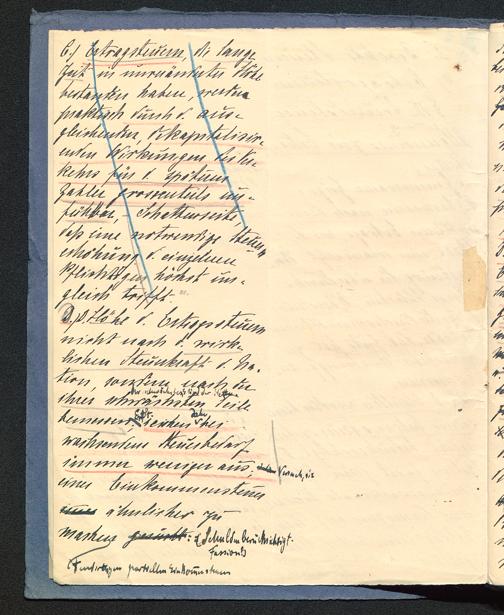 6.) Ertragssteuern, die lange
Zeit in unveränderter Höhe
bestanden haben, werden
praktisch durch d. aus-
gleichenden, dekapitalisir-
enden Wirkungen des Ver-
kehrs für d. späteren
Zahler grossenteils un-
fühlbar, – Schattenseite,
daß eine notwendige Steuer-
erhöhung d. einzelnen
Pflichtigen höchst un-
gleich trifft.
Höhe d. Ertragssteuern
nicht nach d. wirk-
lichen Steuerkraft d. Na-
tion, sondern nach
ihrer
bemessen, reichen bei
wachsendem Steuerbedarf
immer weniger aus: Versuch, sie
einer Einkommensteuer
ähnlicher zu
machen gesucht: Schulden berücksichtigt.
partiellen Einkommensteuern